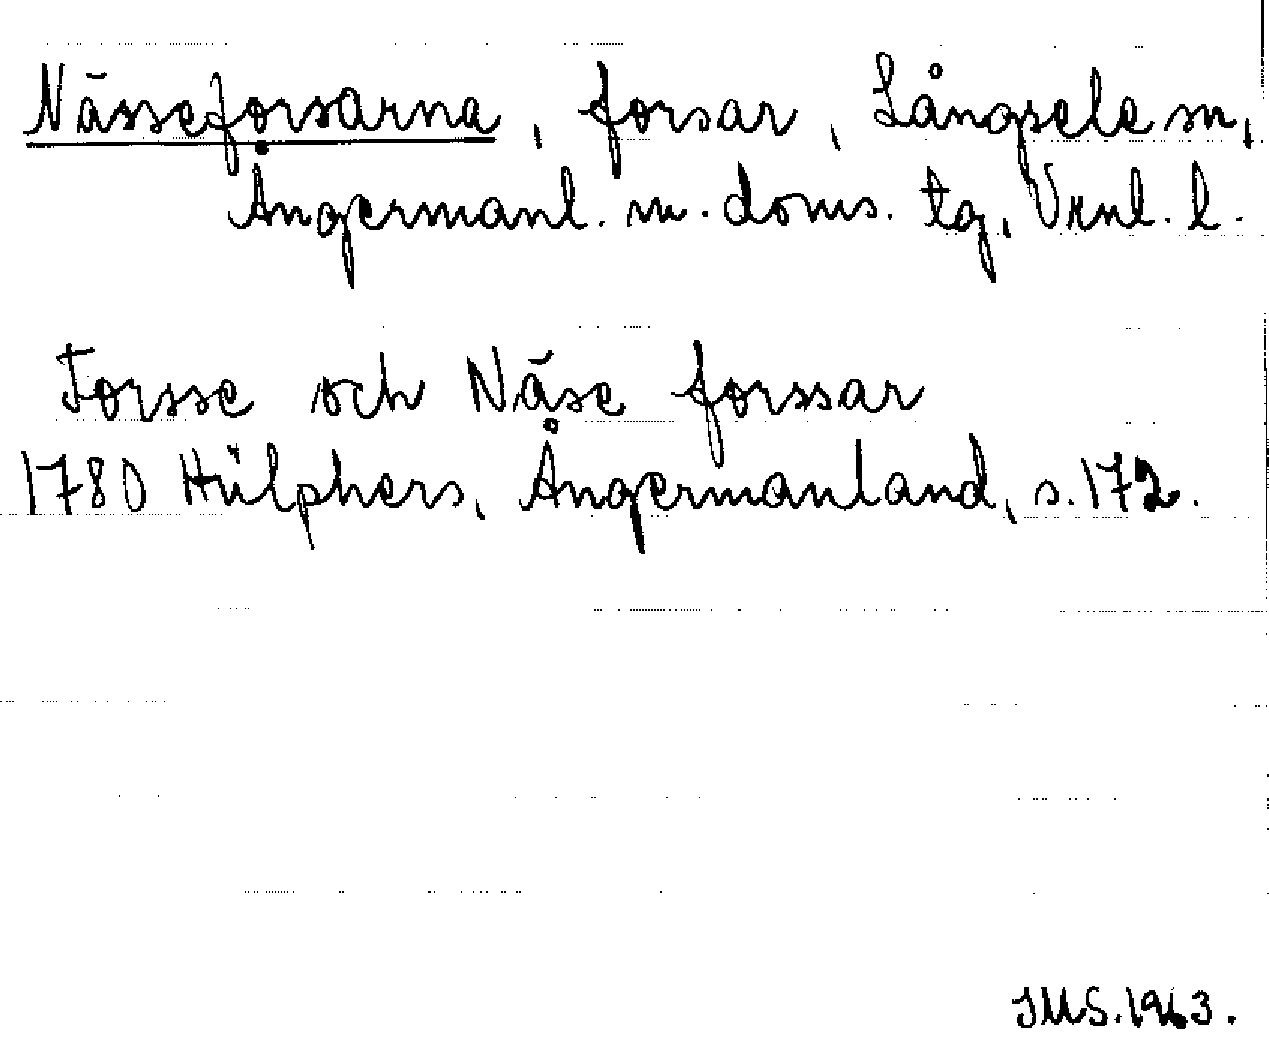 Nässeforsarna, forsar, Långsele sn,
Ångermanl. m. doms. tg, Vrnl. l.
Forsse och Näse forssar
1780 Hülphers, Ångermanland, s. 172.
IMS. 1963.